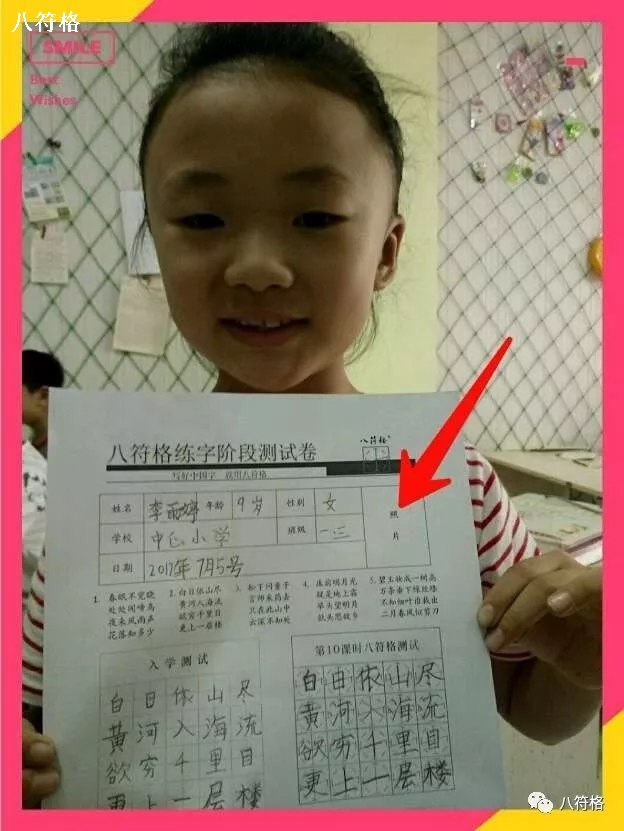 八符格
SMILE
Best
Wishes
八符格练字阶段测试卷
八符格
写好中国字 就用八符格
姓名 李雨婷 年龄 9岁 性别 女
照
片
学校 中心小学 班级 一三
日期 2017年7月5号
1. 春眠不觉晓
处处闻啼鸟
夜来风雨声
花落知多少
2. 白日依山尽
黄河入海流
欲穷千里目
更上一层楼
3. 松下问童子
言师采药去
只在此山中
云深不知处
4. 床前明月光
疑是地上霜
举头望明月
低头思故乡
5. 碧玉妆成一树高
万条垂下绿丝绦
不知细叶谁裁出
二月春风似剪刀
入学测试
白日依山尽
黄河入海流
欲穷千里目
更上一层楼
第10课时八符格测试
白日依山尽
黄河入海流
欲穷千里目
更上一层楼
八符格